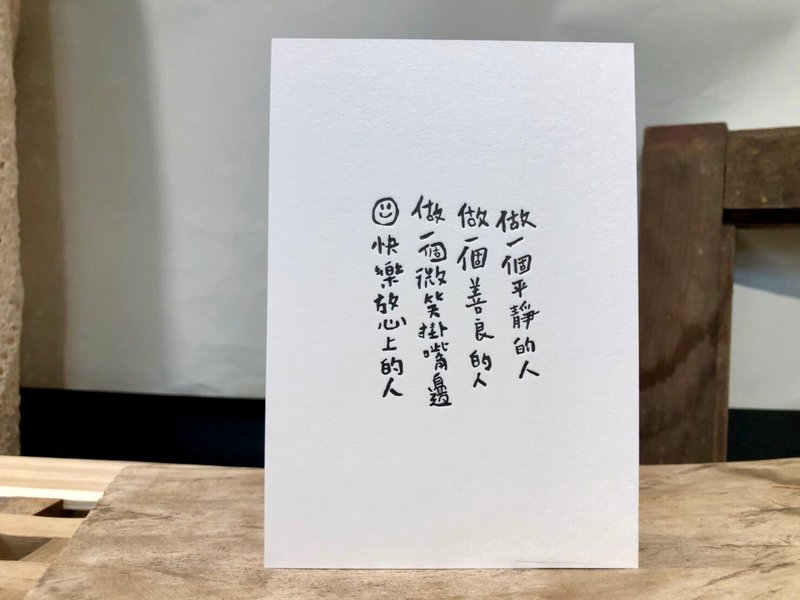 做一個平靜的人
做一個善良的人
做一個微笑掛嘴邊
快樂放心上的人